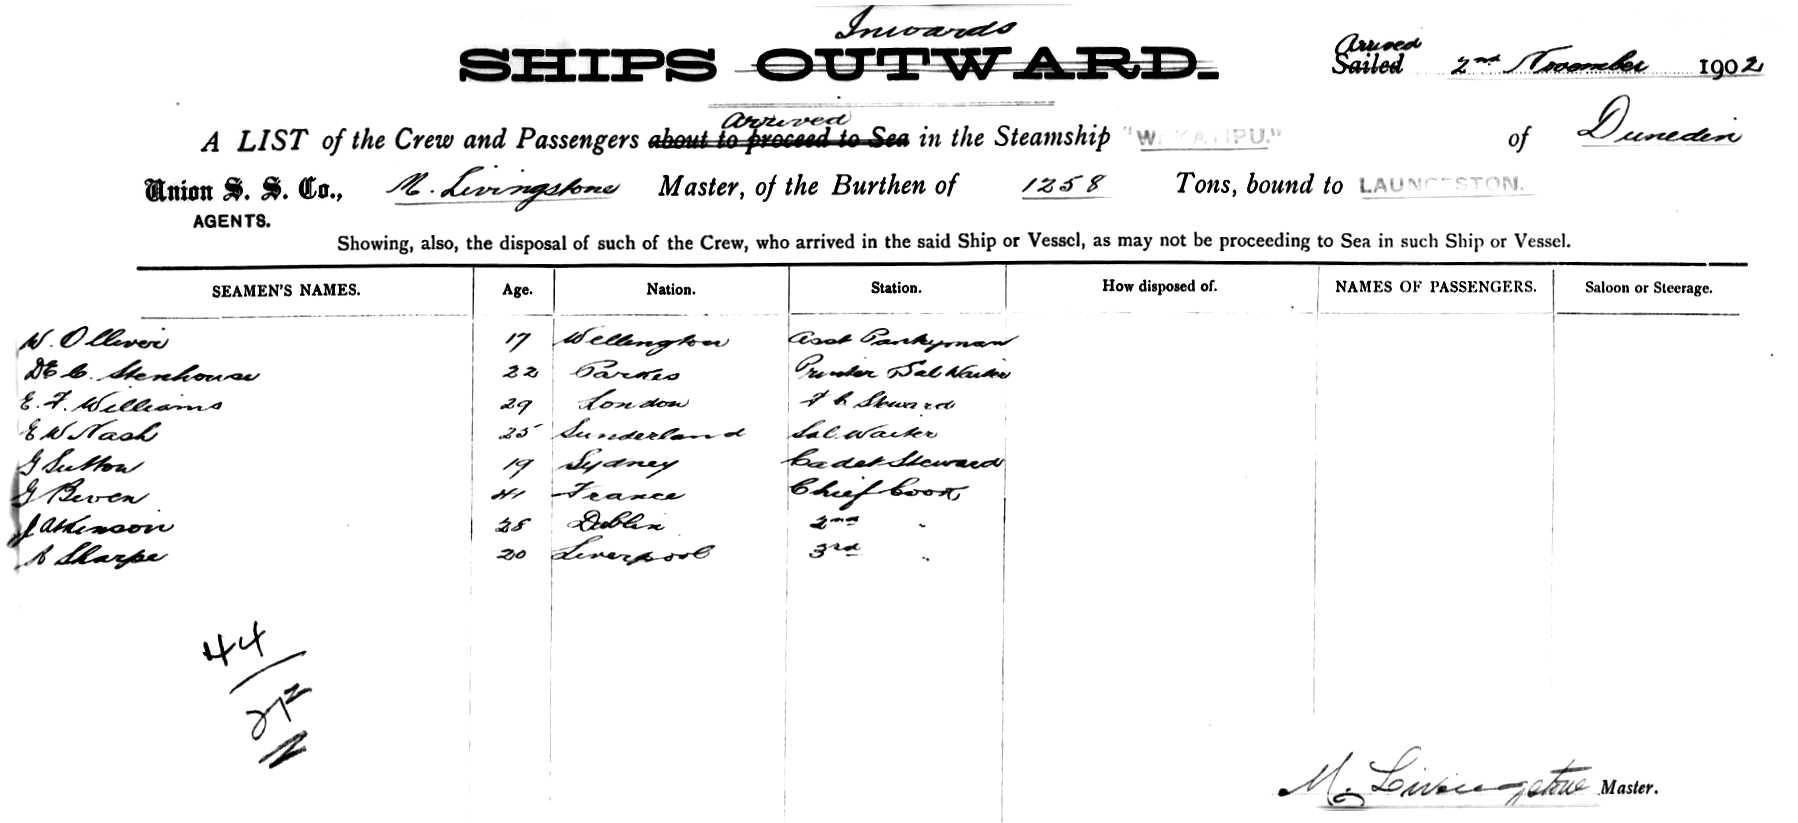 Inwards
SHIPS OUTWARD.
Arrived
Sailed 2nd November 1902
Arrived
A LIST of the Crew and Passengers about to proceed to Sea in the Steamship "WAKATIPU." of Dunedin
Union S. S. Co., M. Livingstone Master, of the Burthen of 1258 Tons, bound to LAUNCESTON.
AGENTS.
Showing, also, the disposal of such of the Crew, who arrived in the said Ship or Vessel, as may not be proceeding to Sea in such Ship or Vessel.
SEAMEN'S NAMES. Age. Nation. Station. How disposed of. NAMES OF PASSENGERS. Saloon or Steerage.
W. Olliver 17 Wellington Asst Pantryman
Stenhouse 22 Parkes Printer Sal Waiter
E. F. Williams 29 London F C Steward
E W Nash 25 Sunderland Sal. Waiter
G Sutton 19 Sydney Cadet Steward
G Beven 41 France Chief Cook
J Atkinson 28 Dublin 2nd "
Sharpe 20 Liverpool 3rd "
44
M. Livingstone Master.